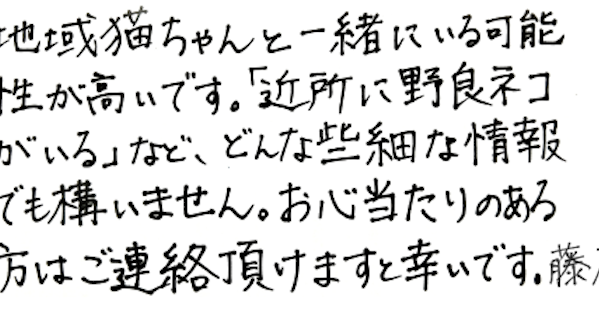 地域猫ちゃんと一緒にいる可能
性が高いです。「近所に野良ネコ
がいる」など、どんな些細な情報
でも構いません。お心当たりのある
方はご連絡頂けますと幸いです。藤